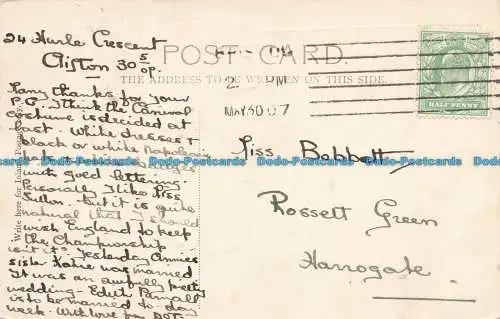 24 Hurle Crescent
Clifton 30 5/07.
POST CARD.
THE ADDRESS TO BE WRITTEN ON THIS SIDE.
HALF PENNY
MAY 30 07
PM
Many thanks for your
P.C. I think the Carnival
costume is decided at
last. White dresses &
black or white Napoleon
hats
with gold lettering.
Personally I like Miss
Sutton - but it is quite
natural that I should
wish England to keep
the Championship
isn't it? Yesterday Annie's
sister Katie was married
It was an awfully pretty
wedding - Edith Parnall
is to be married to-day
week. With love from DOT.
Write here for Inland Postage
Miss Bobbett
Rossett Green
Harrogate
Dodo-Postcards Dodo-Postcards Dodo-Postcards Dodo-Postcards Dodo-Postcards